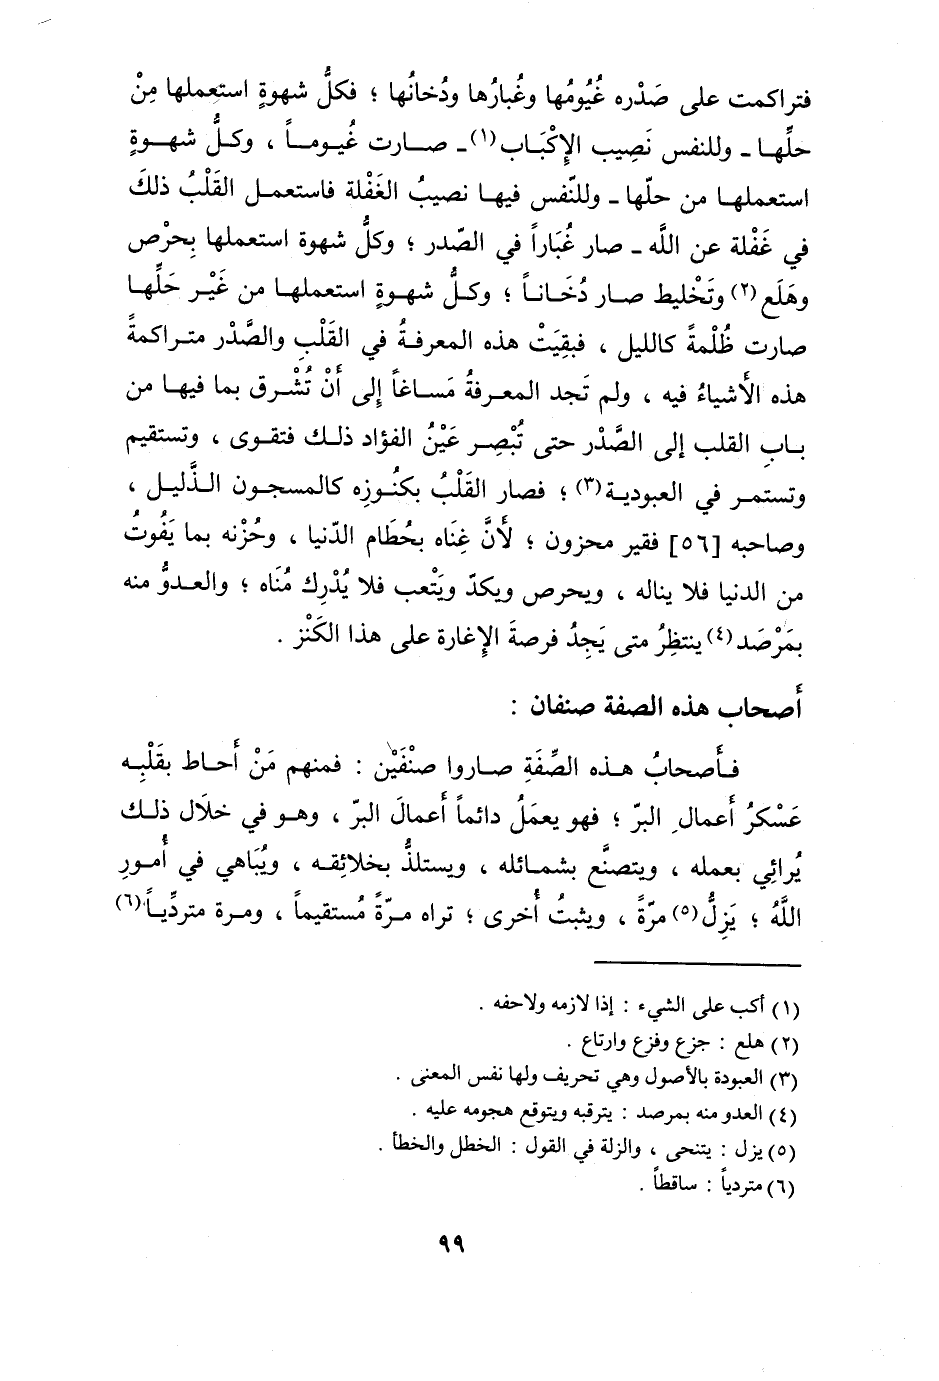 فتراكمت على صَدْره غُيُومُها وغُبارُها ودُخانُها ؛ فكلُّ شهوةٍ استعملها مِنْ
حلِّها ـ وللنفس نَصِيب الإِكْبَاب(١) ـ صارت غُيوماً ، وكلُّ شهوةٍ
استعملها من حلّها ـ وللنّفس فيها نصيبُ الغَفْلة فاستعمل القَلْبُ ذلكَ
في غَفْلة عن اللَّه ـ صار غُبَاراً في الصّدر ؛ وكلُّ شهوة استعملها بِحرْص
وهَلَع(٢) وتَخْليط صار دُخَاناً ؛ وكلُّ شهوةٍ استعملها من غَيْر حَلِّها
صارت ظُلْمةً كالليل ، فبقِيَتْ هذه المعرفةُ في القَلْبِ والصَّدْر متراكمةً
هذه الأَشياءُ فيه ، ولم تَجد المعرفةُ مَساغاً إِلى أَنْ تُشْرق بما فيها من
بابِ القلب إِلى الصَّدْر حتى تُبْصِر عَيْنُ الفؤاد ذلك فتقوى ، وتستقيم
وتستمر في العبودية(٣) ؛ فصار القَلْبُ بكنُوزه كالمسجون الذَّليل ،
وصاحبه [٥٦] فقير محزون ؛ لأَنَّ غِنَاه بحُطَام الدّنيا ، وحُزْنه بما يَفُوتُ
من الدنيا فلا يناله ، ويحرص ويكدّ ويَتْعب فلا يُدْرِك مُنَاه ؛ والعدوُّ منه
بمَرْصَد(٤) ينتظِرُ متى يَجِدُ فرصةَ الإِغارة على هذا الكَنْز .
أَصحاب هذه الصفة صنفان :
فأَصحابُ هذه الصِّفَةِ صاروا صنْفَيْن : فمنهم مَنْ أَحاط بقَلْبِه
عَسْكرُ أَعمالِ البرّ ؛ فهو يعمَلُ دائماً أَعمالَ البرّ ، وهو في خلَال ذلك
يُرائِي بعمله ، ويتصنَّع بشمائله ، ويستلذُّ بخلائِقه ، ويُبَاهي في أُمورِ
اللَّهُ ؛ يَزِلُّ(٥) مرّةً ، ويثبتُ أُخرى ؛ تراه مرّةً مُستقيماً ، ومرة متردِّياً(٦)
(١) أكب على الشيء : إذا لازمه ولاحفه .
(٢) هلع : جزع وفزع وارتاع .
(٣) العبودة بالأصول وهي تحريف ولها نفس المعنى .
(٤) العدو منه بمرصد : يترقبه ويتوقع هجومه عليه .
(٥) يزل : يتنحى ، والزلة في القول : الخطل والخطأ .
(٦) متردياً : ساقطاً .
٩٩